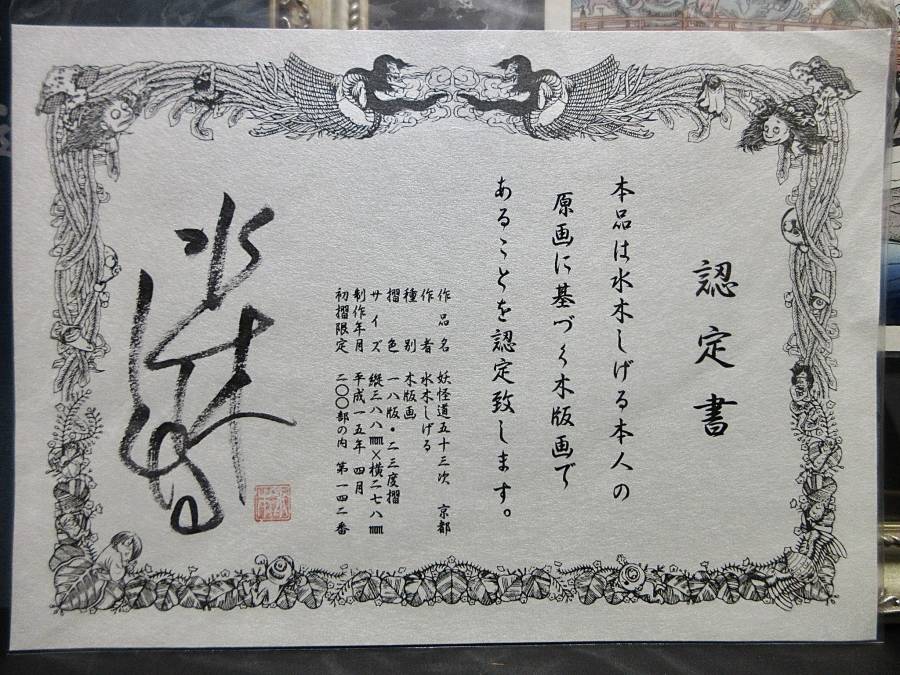 認定書
本品は水木しげる本人の
原画に基づく木版画で
あることを認定致します。
作品名 妖怪道五十三次 京都
作者 水木しげる
種別 木版画
摺色 一八版・二三度摺
サイズ 縦三八八㎜×横二七八㎜
制作年月 平成一五年 四月
初摺限定 二〇〇部の内 第一四二番
水木しげる